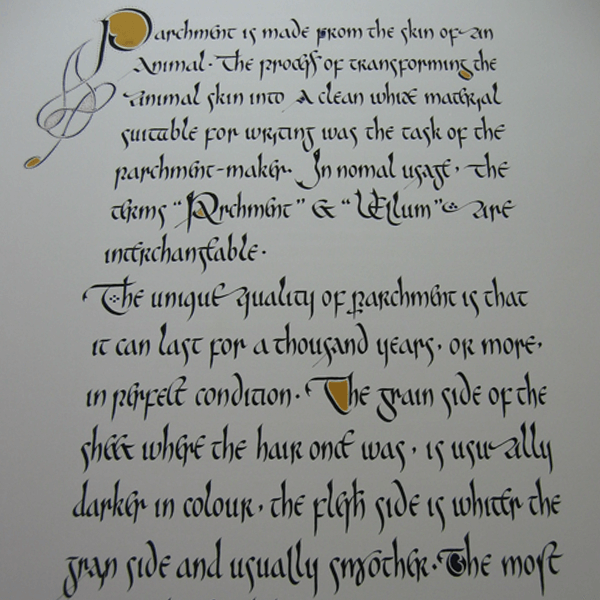 Parchment is made from the skin of an
Animal. The process of transforming the
animal skin into A clean white material
suitable for writing was the task of the
parchment-maker. In nomal usage, the
terms "Parchment" & "Vellum" are
interchangeable.
The unique quality of parchment is that
it can last for a thousand years, or more,
in perfect condition. The grain side of the
sheet where the hair once was, is usually
darker in colour, the flesh side is whiter the
gran side and usually smoother. The most